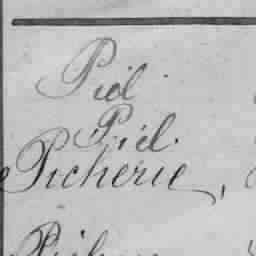 Piel
Piel.
Picherie,